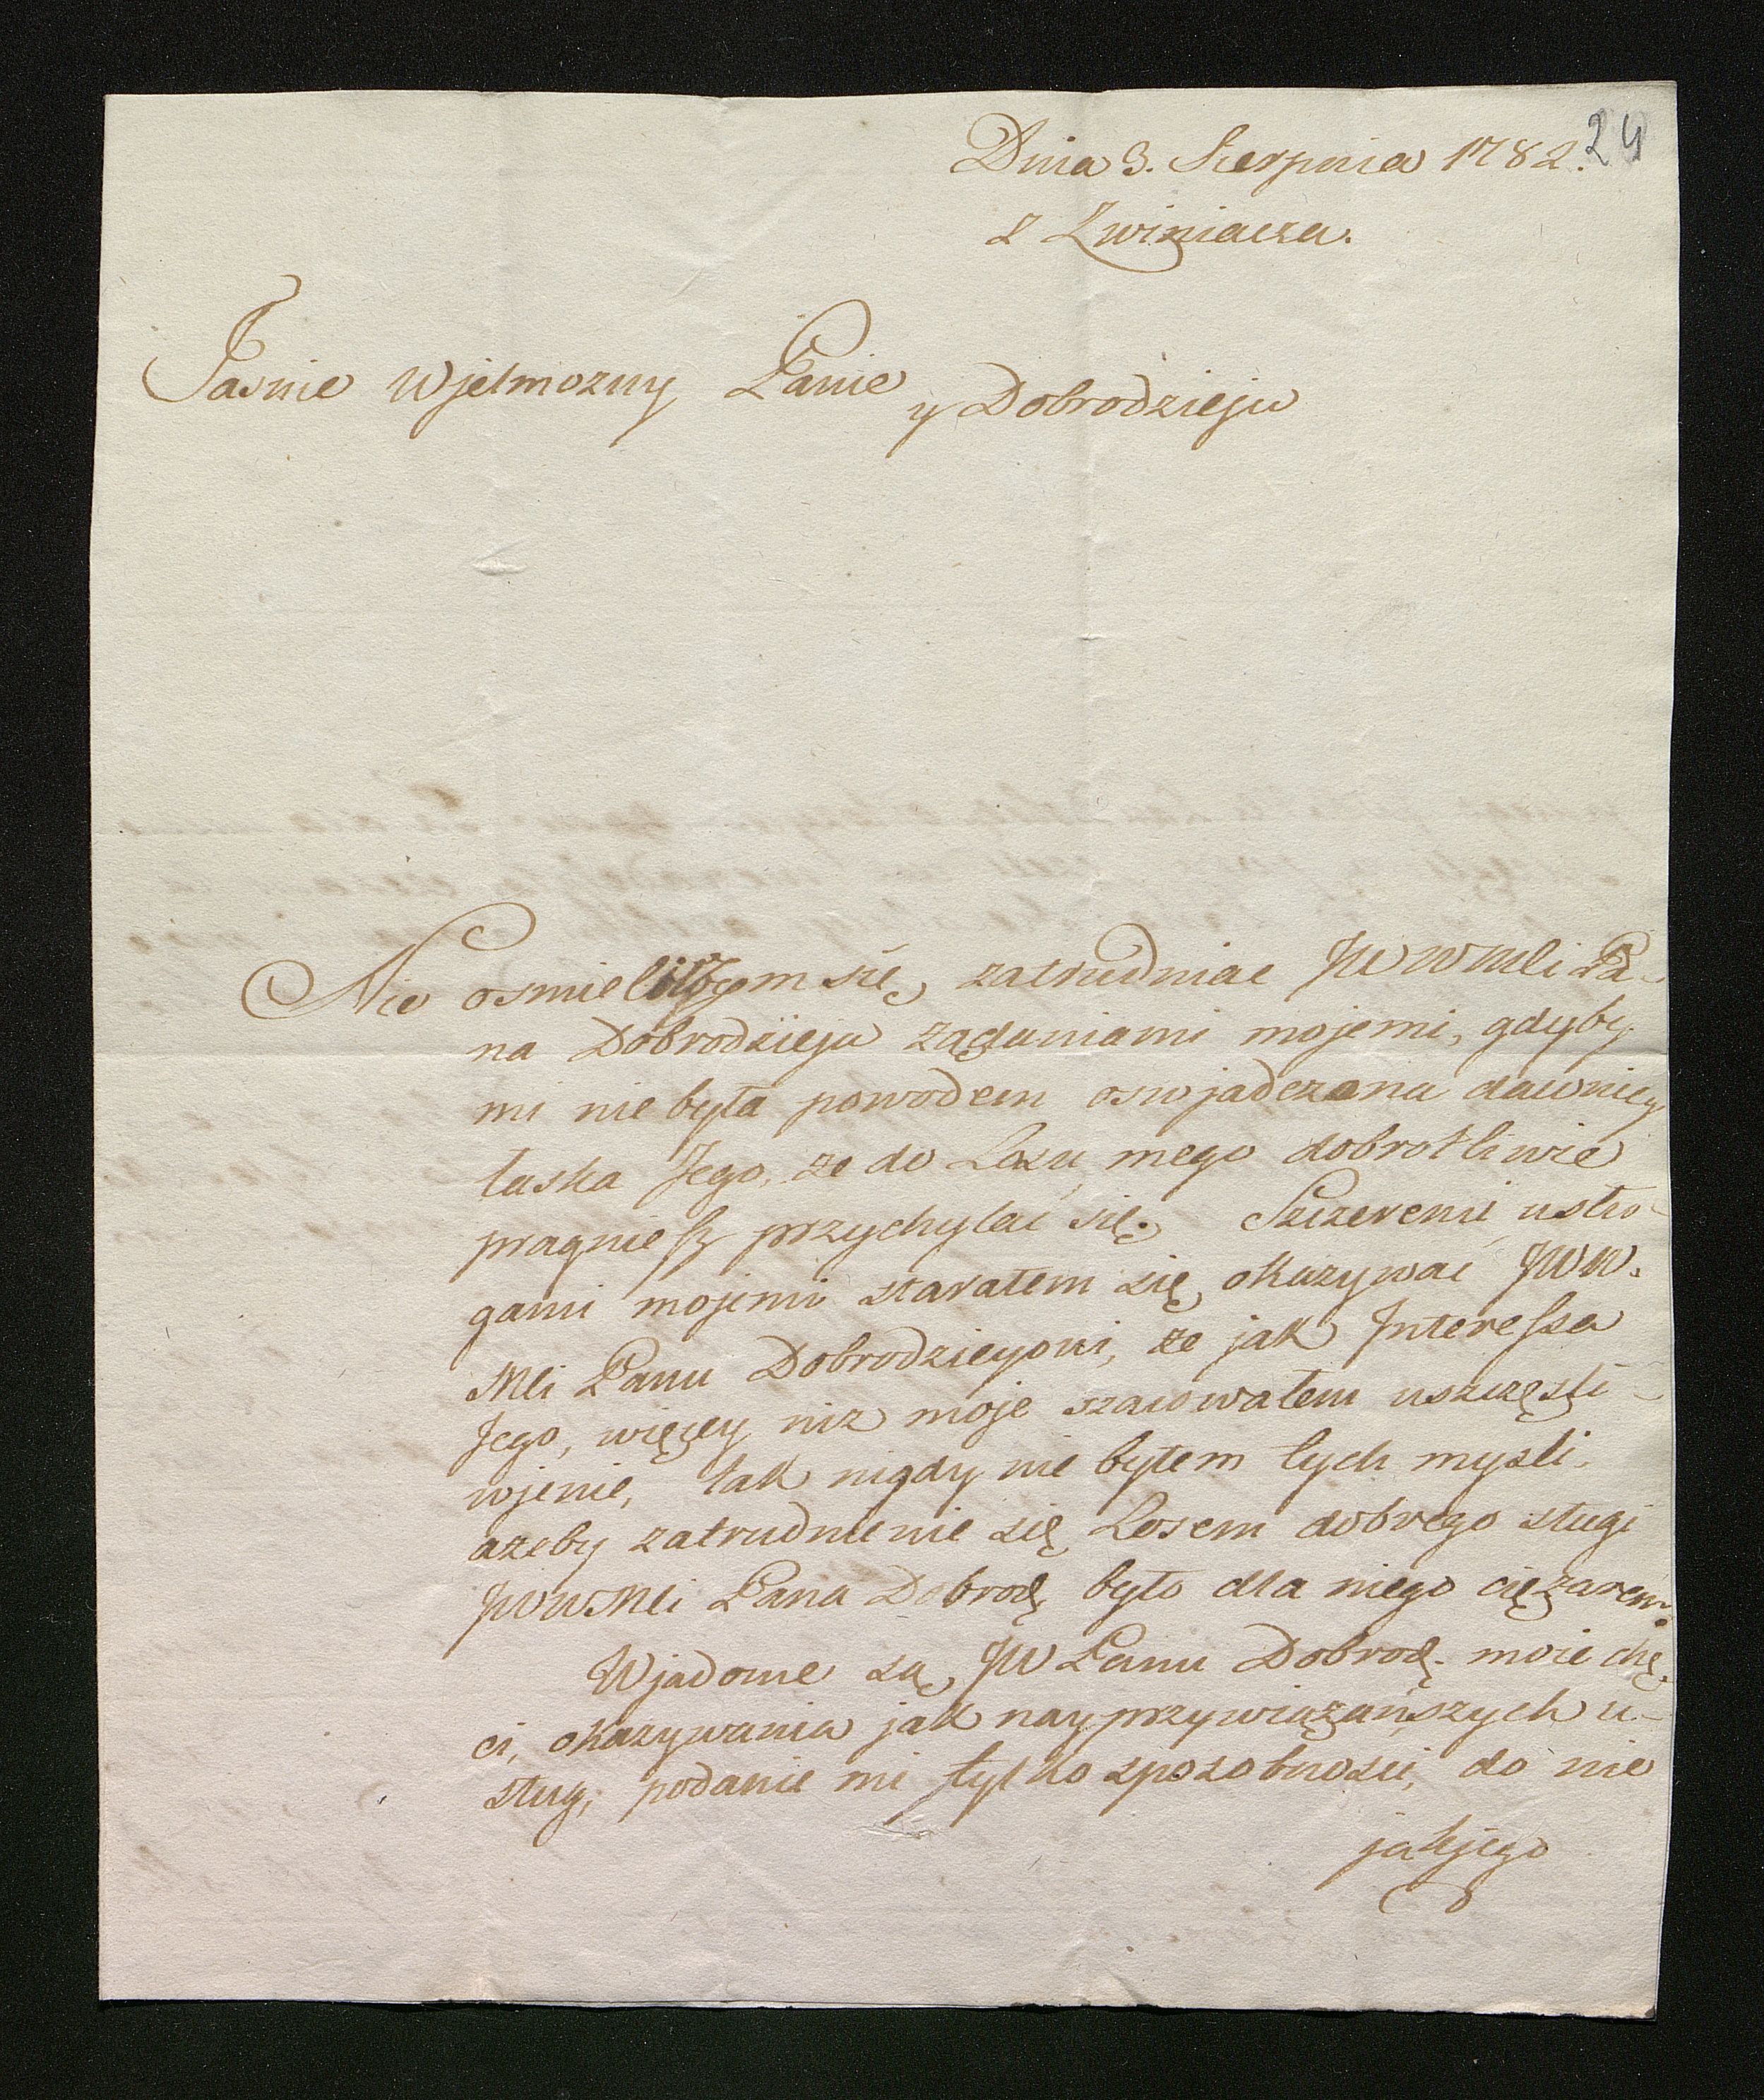 24
Dnia 3. Sierpnia 1782.
z Zwiniacza.
Jasnie Wjelmozny Panie y Dobrodzieju
Nie osmielilbym się, zatrudniac JW WMli Pa-
na Dobrodzieja ządaniami mojemi, gdyby
mi nie była powodem oswjadczona dawniey
łaska Jego, ze do Losu mego dobrotliwie
pragniesz przychylać się. Szczeremi usłu-
gami mojemi starałem się okazywać JWW.
Mli Panu Dobrodzieyowi, ze jak Interessa
Jego, więcey niz moje szacowałem uszczęśli-
wjenie, tak nigdy nie byłem tych mysli,
azeby zatrudnienie się Losem dobrego sługi
JWWMli Pana Dobrodz. było dla niego ciężarem.
Wjadome są, JW Panu Dobrodz. moie chę-
ci, okazywania jak nayprzywiązańszych u-
sług, podanie mi tylko sposobnosci, do nie
jakjego